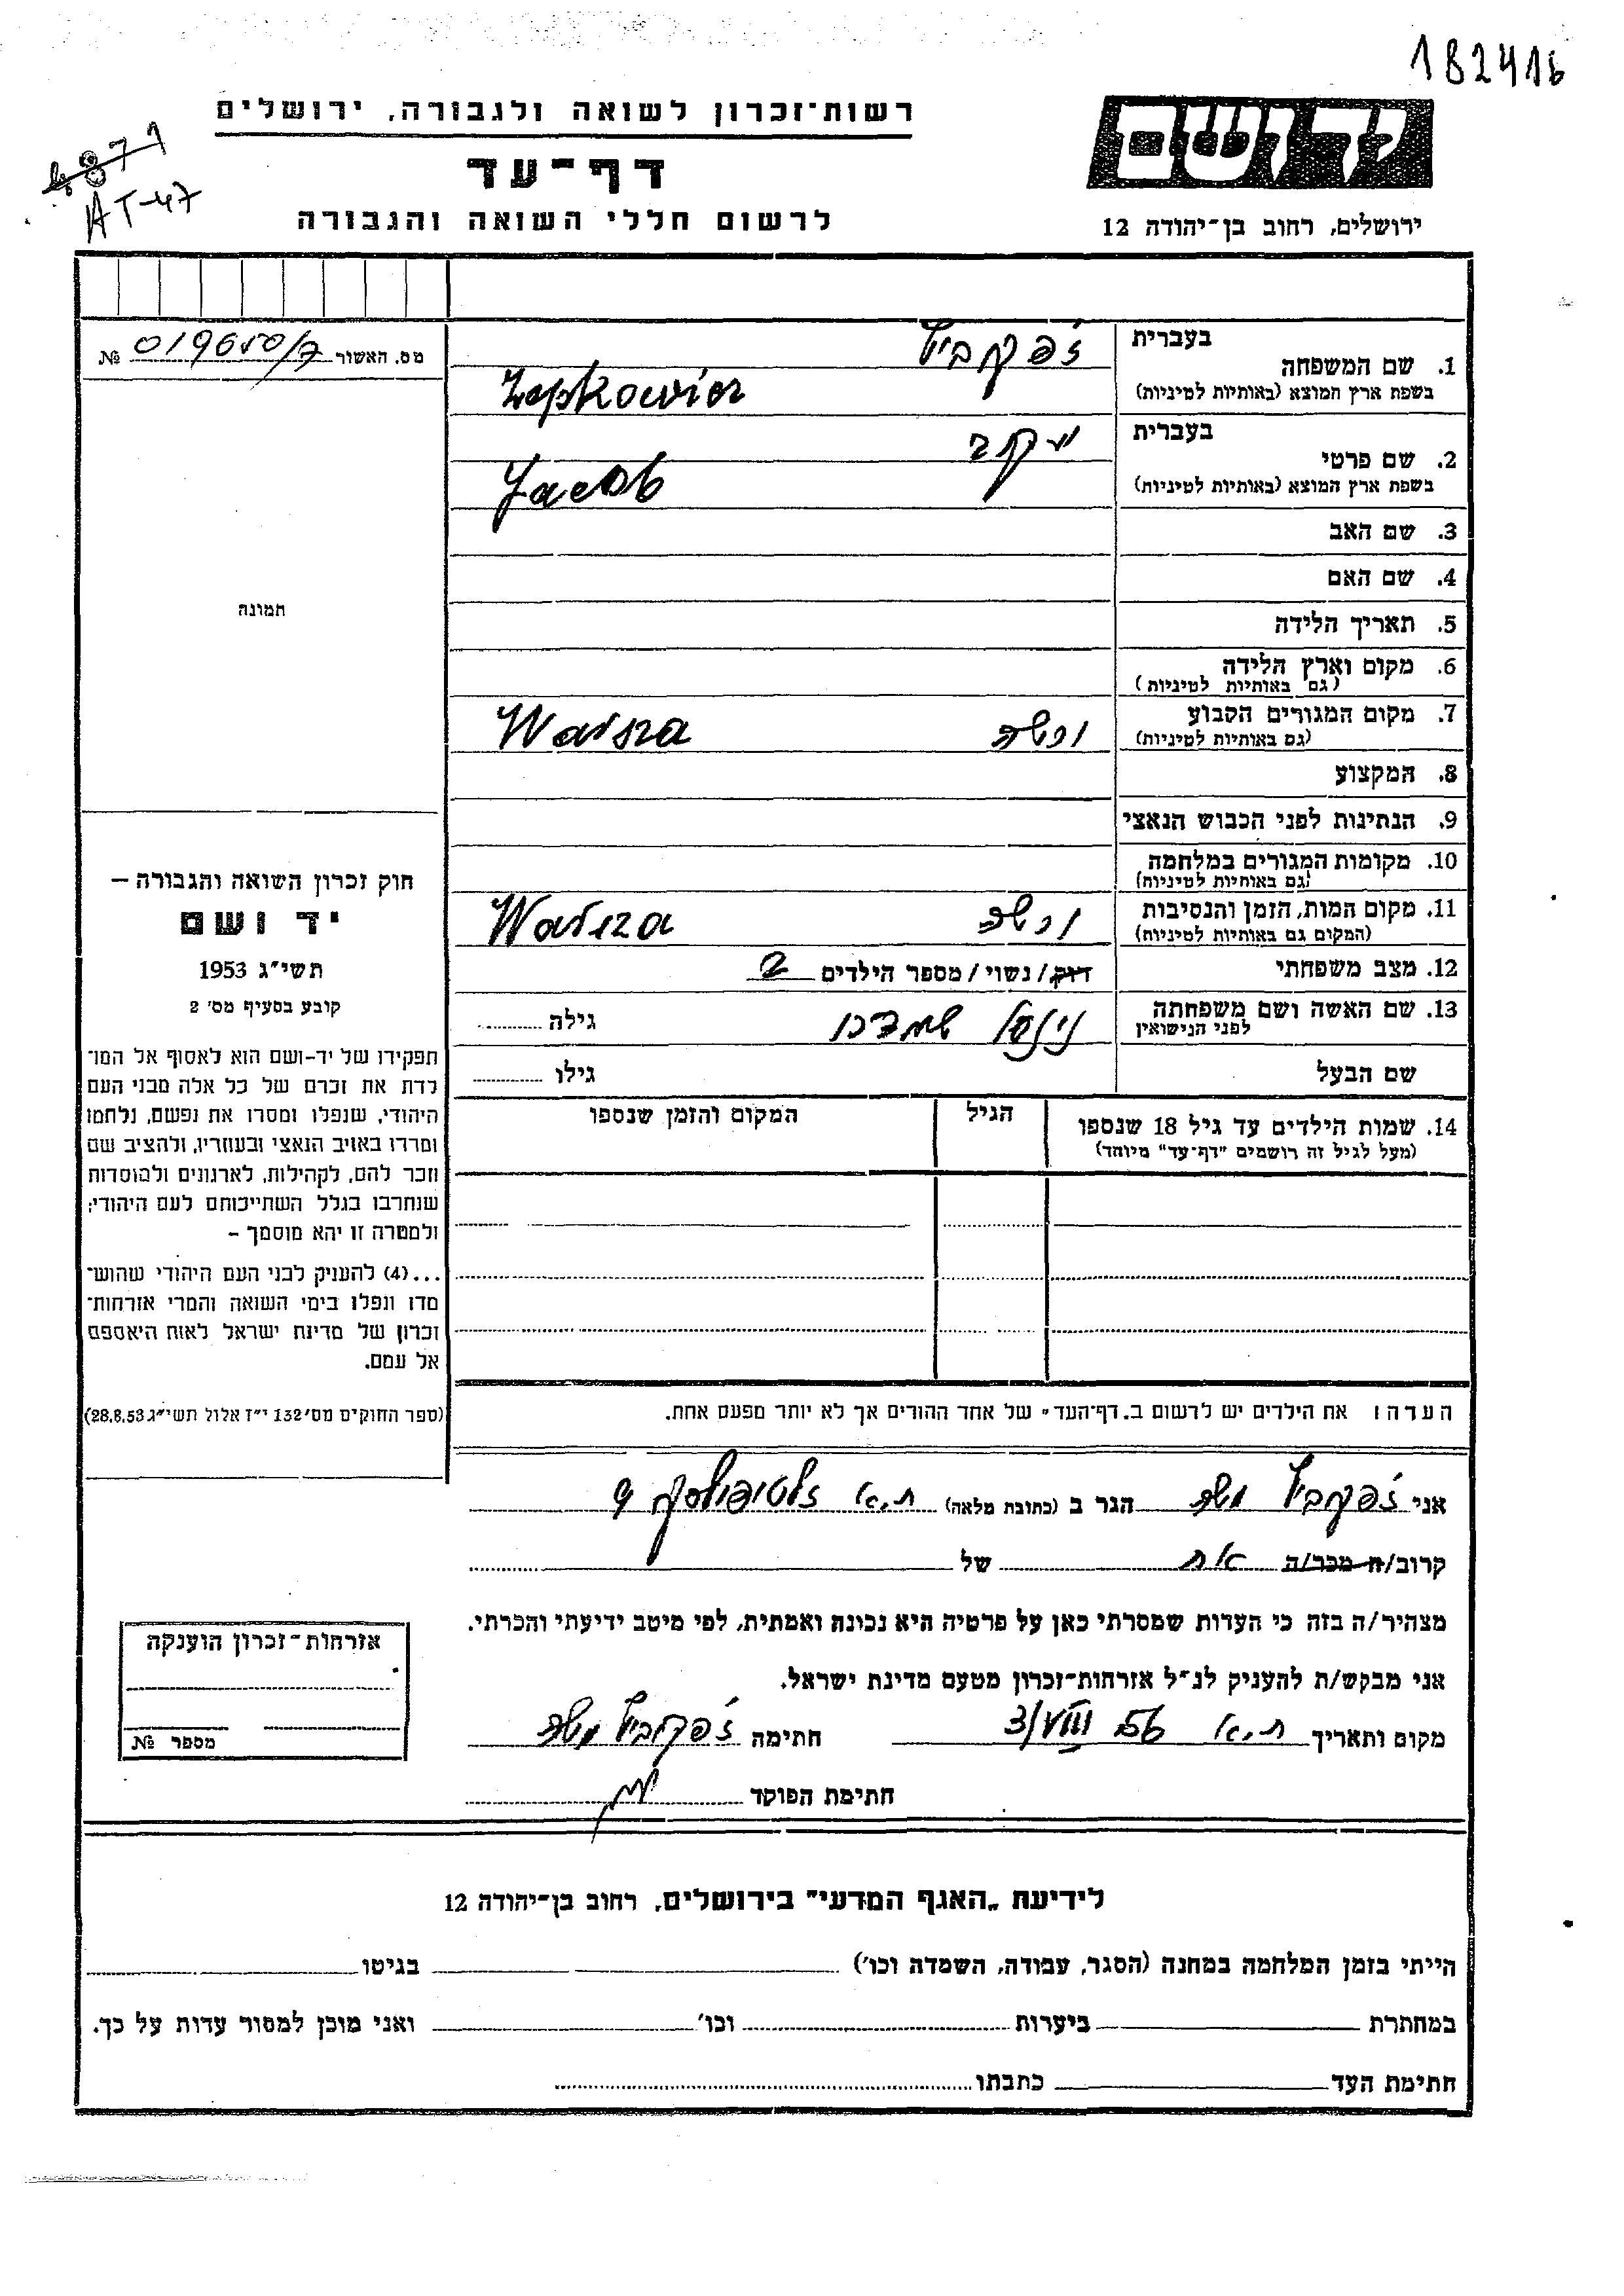 182416
רשות־זכרון לשואה ולגבורה, ירושלים
יד ושם
דף־עד
AT-47
לרשום חללי השואה והגבורה
ירושלים, רחוב בן־יהודה 12
בעברית
1. שם המשפחה
בשפת ארץ המוצא (באותיות לטיניות)
ז'פקביץ
Zepkowicz
מס. האשור 019650/7 №
בעברית
2. שם פרטי
בשפת ארץ המוצא (באותיות לטיניות)
יעקב
Jacob
3. שם האב
4. שם האם
תמונה
5. תאריך הלידה
6. מקום וארץ הלידה
(גם באותיות לטיניות)
7. מקום המגורים הקבוע
(גם באותיות לטיניות)
ורשה Warsza
8. המקצוע
9. הנתינות לפני הכבוש הנאצי
10. מקומות המגורים במלחמה
(גם באותיות לטיניות)
11. מקום המות, הזמן והנסיבות
(המקום גם באותיות לטיניות)
ורשה Warsza
12. מצב משפחתי רווק/ נשוי/ מספר הילדים 2
13. שם האשה ושם משפחתה
לפני הנישואין
גילה
שם הבעל גילו
14. שמות הילדים עד גיל 18 שנספו
(מעל לגיל זה רושמים "דף־עד" מיוחד)
הגיל
המקום והזמן שנספו
חוק זכרון השואה והגבורה –
יד ושם
תשי"ג 1953
קובע בסעיף מס' 2
תפקידו של יד-ושם הוא לאסוף אל המו־
לדת את זכרם של כל אלה מבני העם
היהודי, שנפלו ומסרו את נפשם, נלחמו
ומרדו באויב הנאצי ובעוזריו, ולהציב שם
וזכר להם, לקהילות, לארגונים ולמוסדות
שנחרבו בגלל השתייכותם לעם היהודי;
ולמטרה זו יהא מוסמך –
...(4) להעניק לבני העם היהודי שהוש־
מדו ונפלו בימי השואה והמרי אזרחות־
זכרון של מדינת ישראל לאות היאספם
אל עמם.
(ספר החוקים מס' 132 י"ז אלול תשי"ג 28.8.53)
הערה: את הילדים יש לרשום ב„דף־העד" של אחד ההורים אך לא יותר מפעם אחת.
אני ז'פקביץ משה הגר ב (כתובת מלאה) ת.א זלטופולסקי 9
קרוב/ה מכר/ה אח של
מצהיר/ה בזה כי העדות שמסרתי כאן על פרטיה היא נכונה ואמתית, לפי מיטב ידיעתי והכרתי.
אני מבקש/ת להעניק לנ"ל אזרחות־זכרון מטעם מדינת ישראל.
מקום ותאריך ת.א 3/VIII 56 חתימה ז'פקוביץ משה
חתימת הפוקד
אזרחות־זכרון הוענקה
מספר №
לידיעת „האגף המדעי" בירושלים, רחוב בן־יהודה 12
הייתי בזמן המלחמה במחנה (הסגר, עבודה, השמדה וכו') בגיטו
במחתרת ביערות וכו' ואני מוכן למסור עדות על כך.
חתימת העד כתבתו